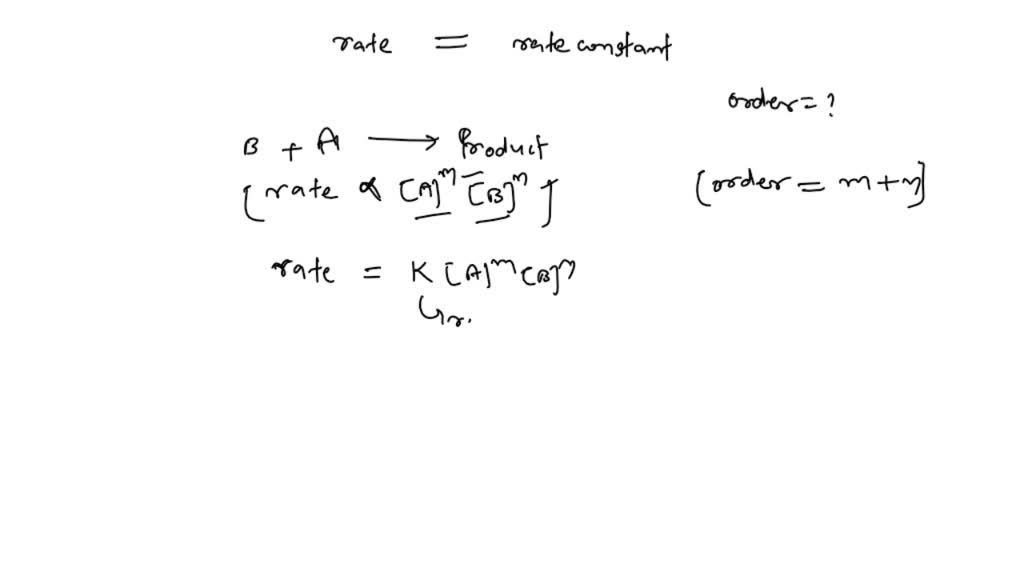 rate = rate constant
order = ?
B + A → Product
[rate ∝ [A]^m [B]^n]
(order = m + n]
rate = K [A]^m [B]^n
↳ r.